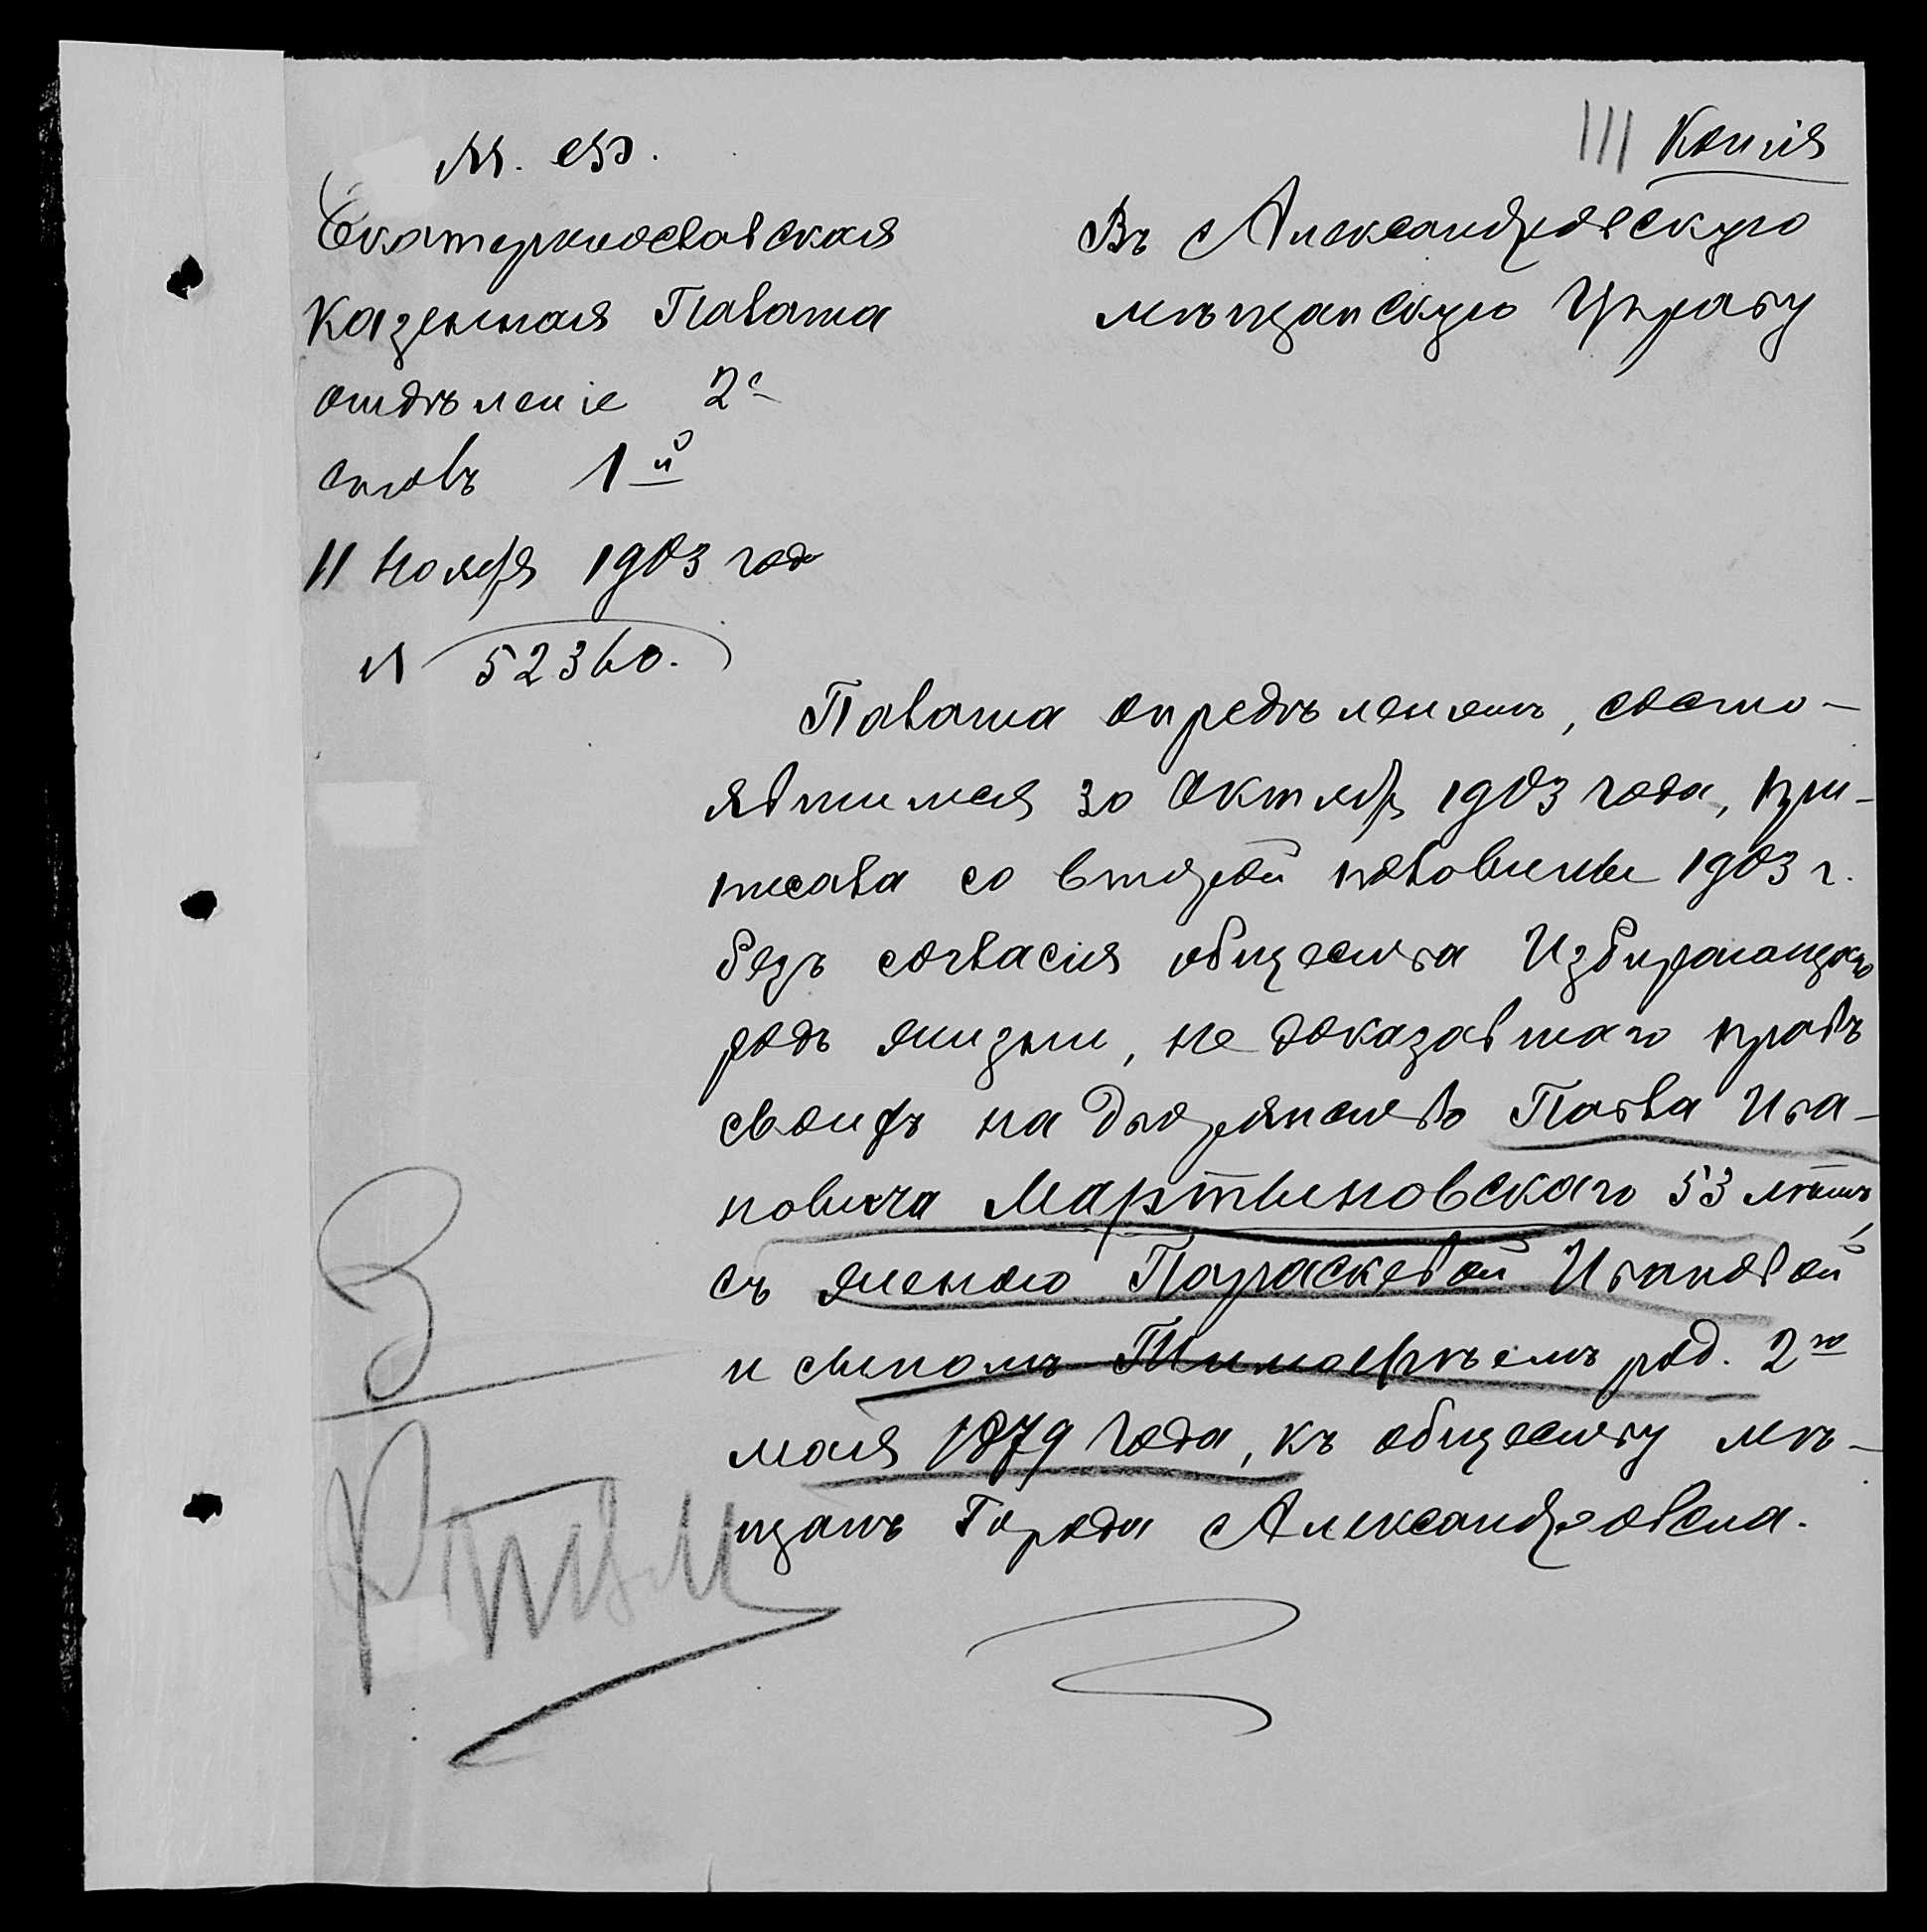 111 Копія
М. Ф.
Екатеринославская
Казенная Палата
отдѣленіе 2е
столъ 1й
11 Ноября 1903 года
№ 52360.
Въ Александровскую
мѣщанскую Управу
Палата опредѣленіемъ, состо-
явшимся 30 Октября 1903 года, при-
писала со второй половины 1903 г.
безъ согласія общества Избирающаго
родъ жизни, не доказавшаго правъ
своихъ на дворянство Павла Ива-
новича Мартыновскаго 53 лѣтъ,
съ женою Параскевой Ивановой
и сыномъ Тимофѣемъ род. 2го
мая 1879 года, къ обществу мѣ-
щанъ Города Александровска.